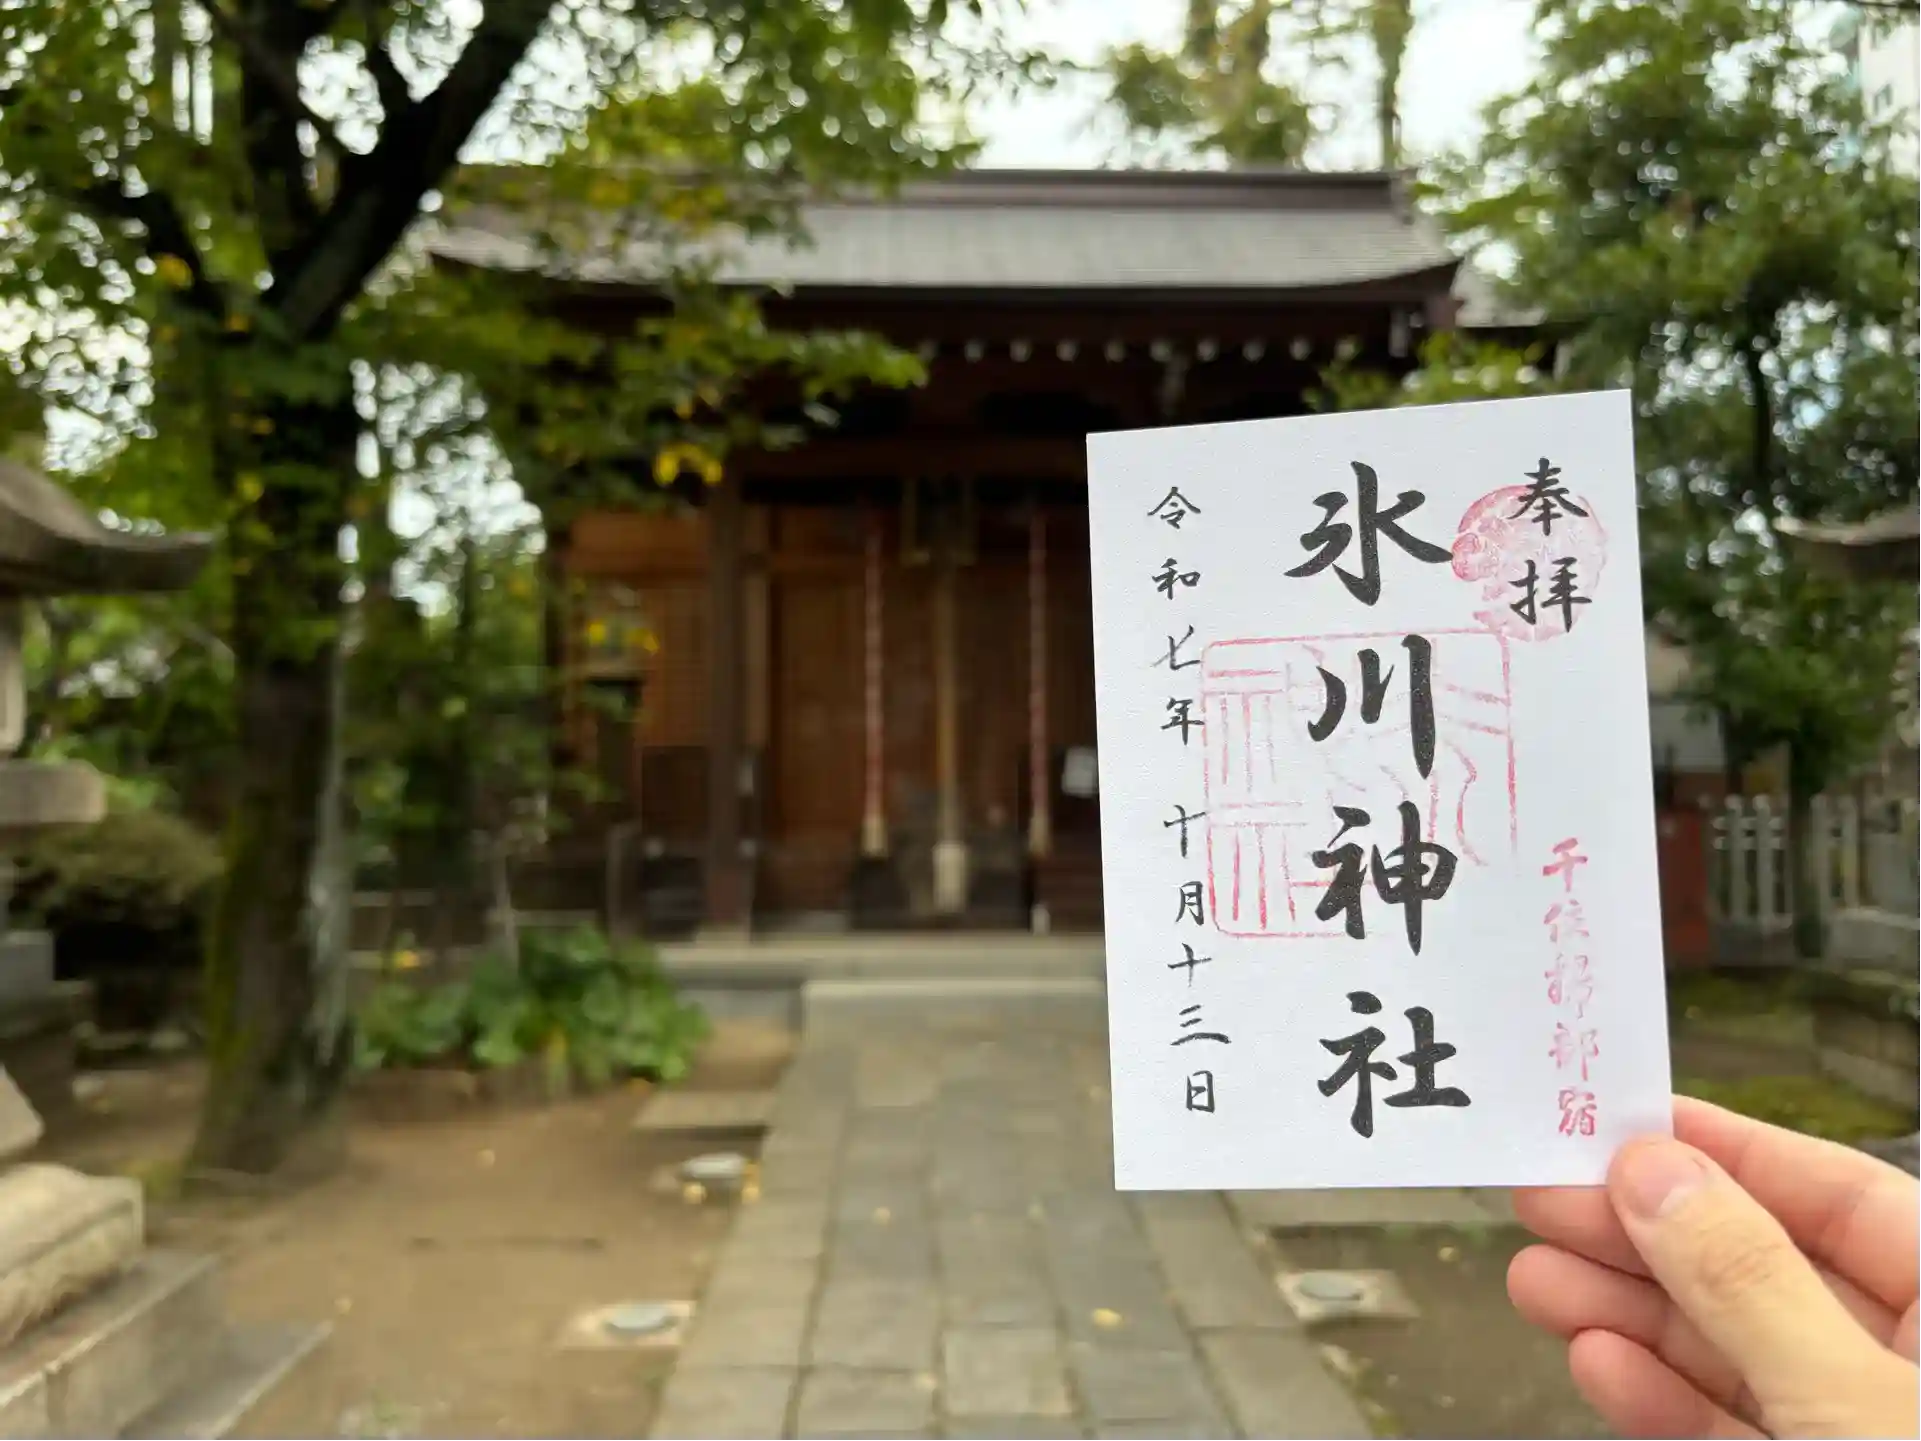 奉拝
千住掃部宿
氷川神社
令和七年 十月十三日